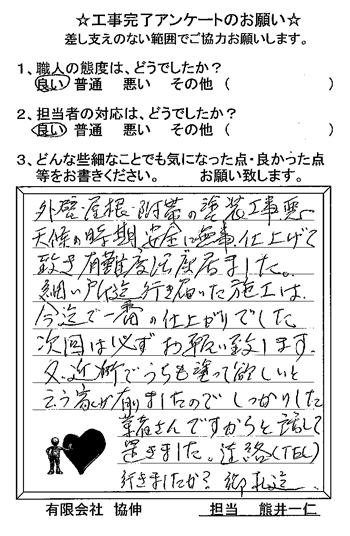 ☆工事完了アンケートのお願い☆
差し支えのない範囲でご協力お願いします。
1、職人の態度は、どうでしたか?
良い 普通 悪い その他 ( )
2、担当者の対応は、どうでしたか?
良い 普通 悪い その他 ( )
3、どんな些細なことでも気になった点・良かった点
等をお書きください。 お願い致します。
外壁・屋根・附帯の塗装工事
天候の時期、安全に無事仕上げて
致き有難度
細い戸迄行き届いた施工は
今迄で一番の仕上がりでした。
次回は必ずお願い致します。
又、近所でうちも塗って欲しいと
云う家が有りましたのでしっかりした
業者さんですからと話して
置きました。連絡(TEL)
行きましたか? 御礼迄
有限会社 協伸 担当 熊井一仁